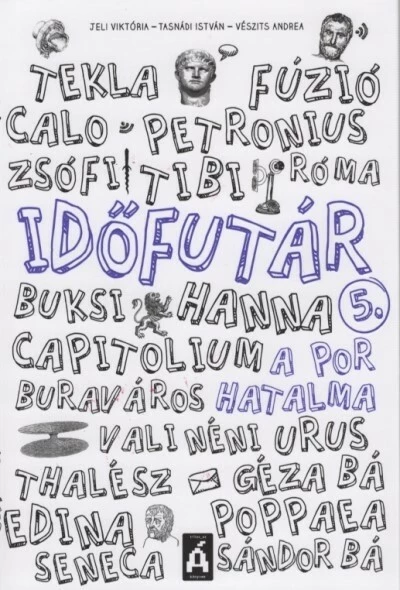 JELI VIKTÓRIA – TASNÁDI ISTVÁN – VÉSZITS ANDREA
TEKLA FÚZIÓ
CALO PETRONIUS
ZSÓFI TIBI RÓMA
IDŐFUTÁR
BUKSI HANNA 5.
CAPITOLIUM A POR
BURAVÁROS HATALMA
VALI NÉNI URUS
THALÉSZ GÉZA BÁ
EDINA POPPAEA
SENECA SÁNDOR BÁ
Á